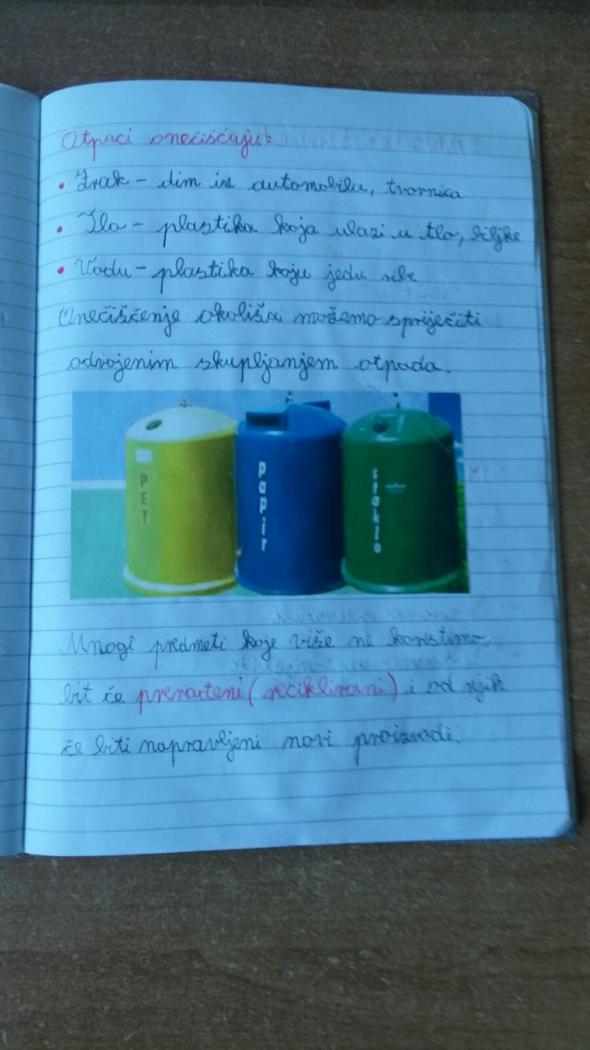 Otpaci onečišćuju:
• Zrak - dim iz automobila, tvornica
• Tlo - plastika koja ulazi u tlo, biljke
• Vodu - plastika koju jedu ribe
Onečišćenje okoliša možemo spriječiti
odvojenim skupljanjem otpada.
PET
papir
staklo
Mnogi predmeti koje više ne koristimo
bit će prerađeni (reciklirani) i od njih
će biti napravljeni novi proizvodi.